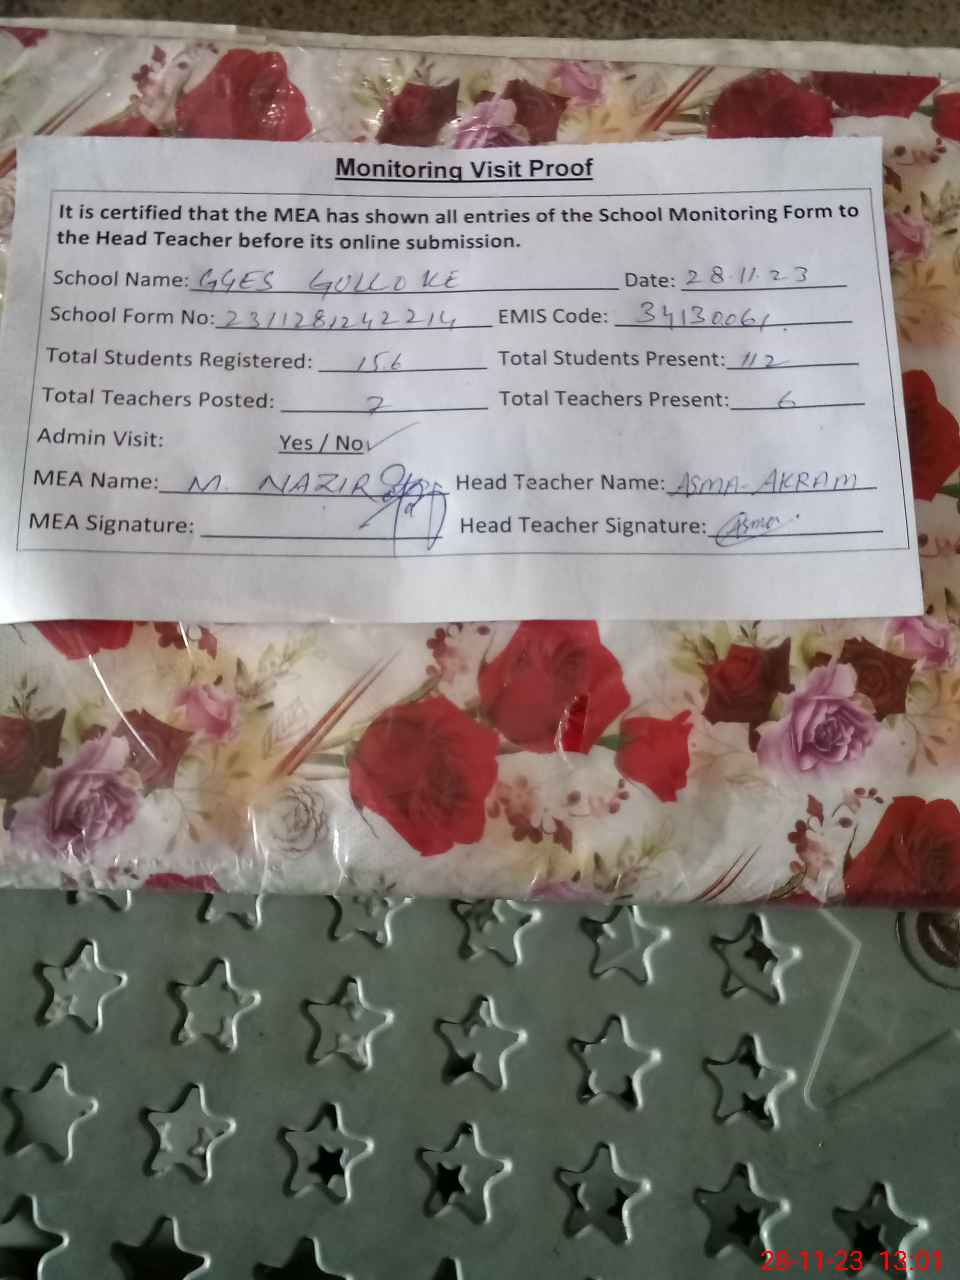 Monitoring Visit Proof
It is certified that the MEA has shown all entries of the School Monitoring Form to
the Head Teacher before its online submission.
School Name: GGES GULLO KE Date: 28.11.23
School Form No: 231128124 2214 EMIS Code: 34130061
Total Students Registered: 156 Total Students Present: 112
Total Teachers Posted: 7 Total Teachers Present: 6
Admin Visit: Yes / No ✓
MEA Name: M. NAZIR Head Teacher Name: ASMA-AKRAM
MEA Signature: Head Teacher Signature: Asma
28-11-23 13:01